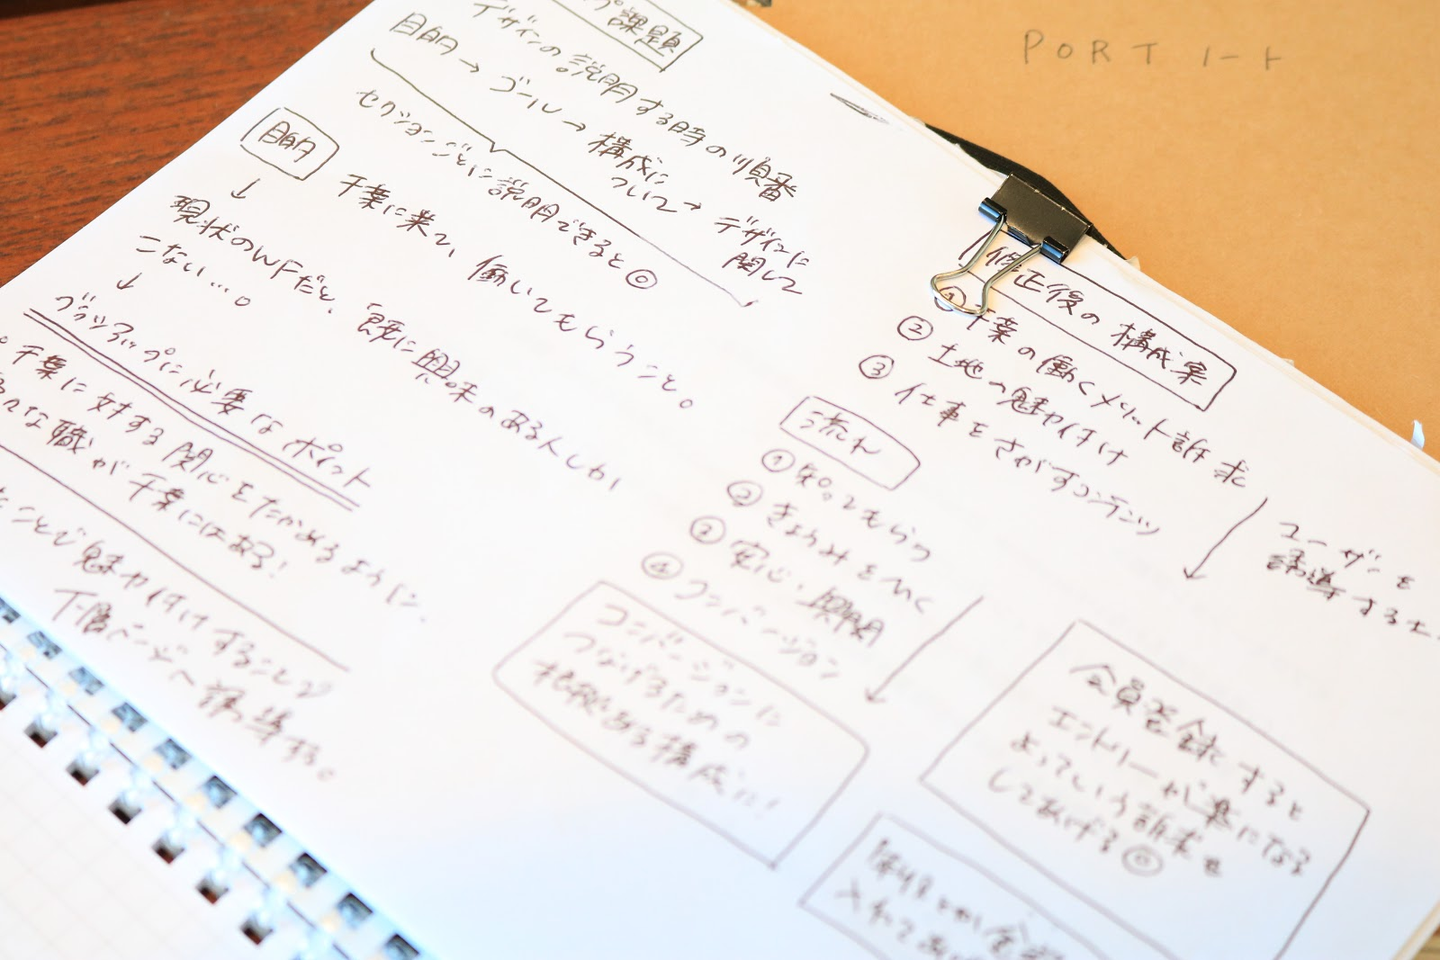 PORT ノート
課題
デザインの説明する時の順番
目的→ゴール→構成に
ついて→デザインに
関して
セクションごとに説明できると◎
目的
↓
千葉に来て、働いてもらうこと。
現状のWFだと、既に興味のある人しか
こない…。
↓
ブラッシュアップに必要なポイント
千葉に対する関心をたかめるように、
な職が千葉にはある!
ことで魅力付けすることで
下層ページへ誘導する。
修正後の構成案
① 千葉の働くメリット訴求
② 土地の魅力付け
③ 仕事をさがすコンテンツ
ユーザーを
誘導する
流れ
① 知ってもらう
② きょうみをひく
③ 安心・
④ コンバージョン
コンバージョンに
つなげるための
ある構成に!
会員登録すると
エントリーが楽になる
よっていう訴求を
してあげる◎